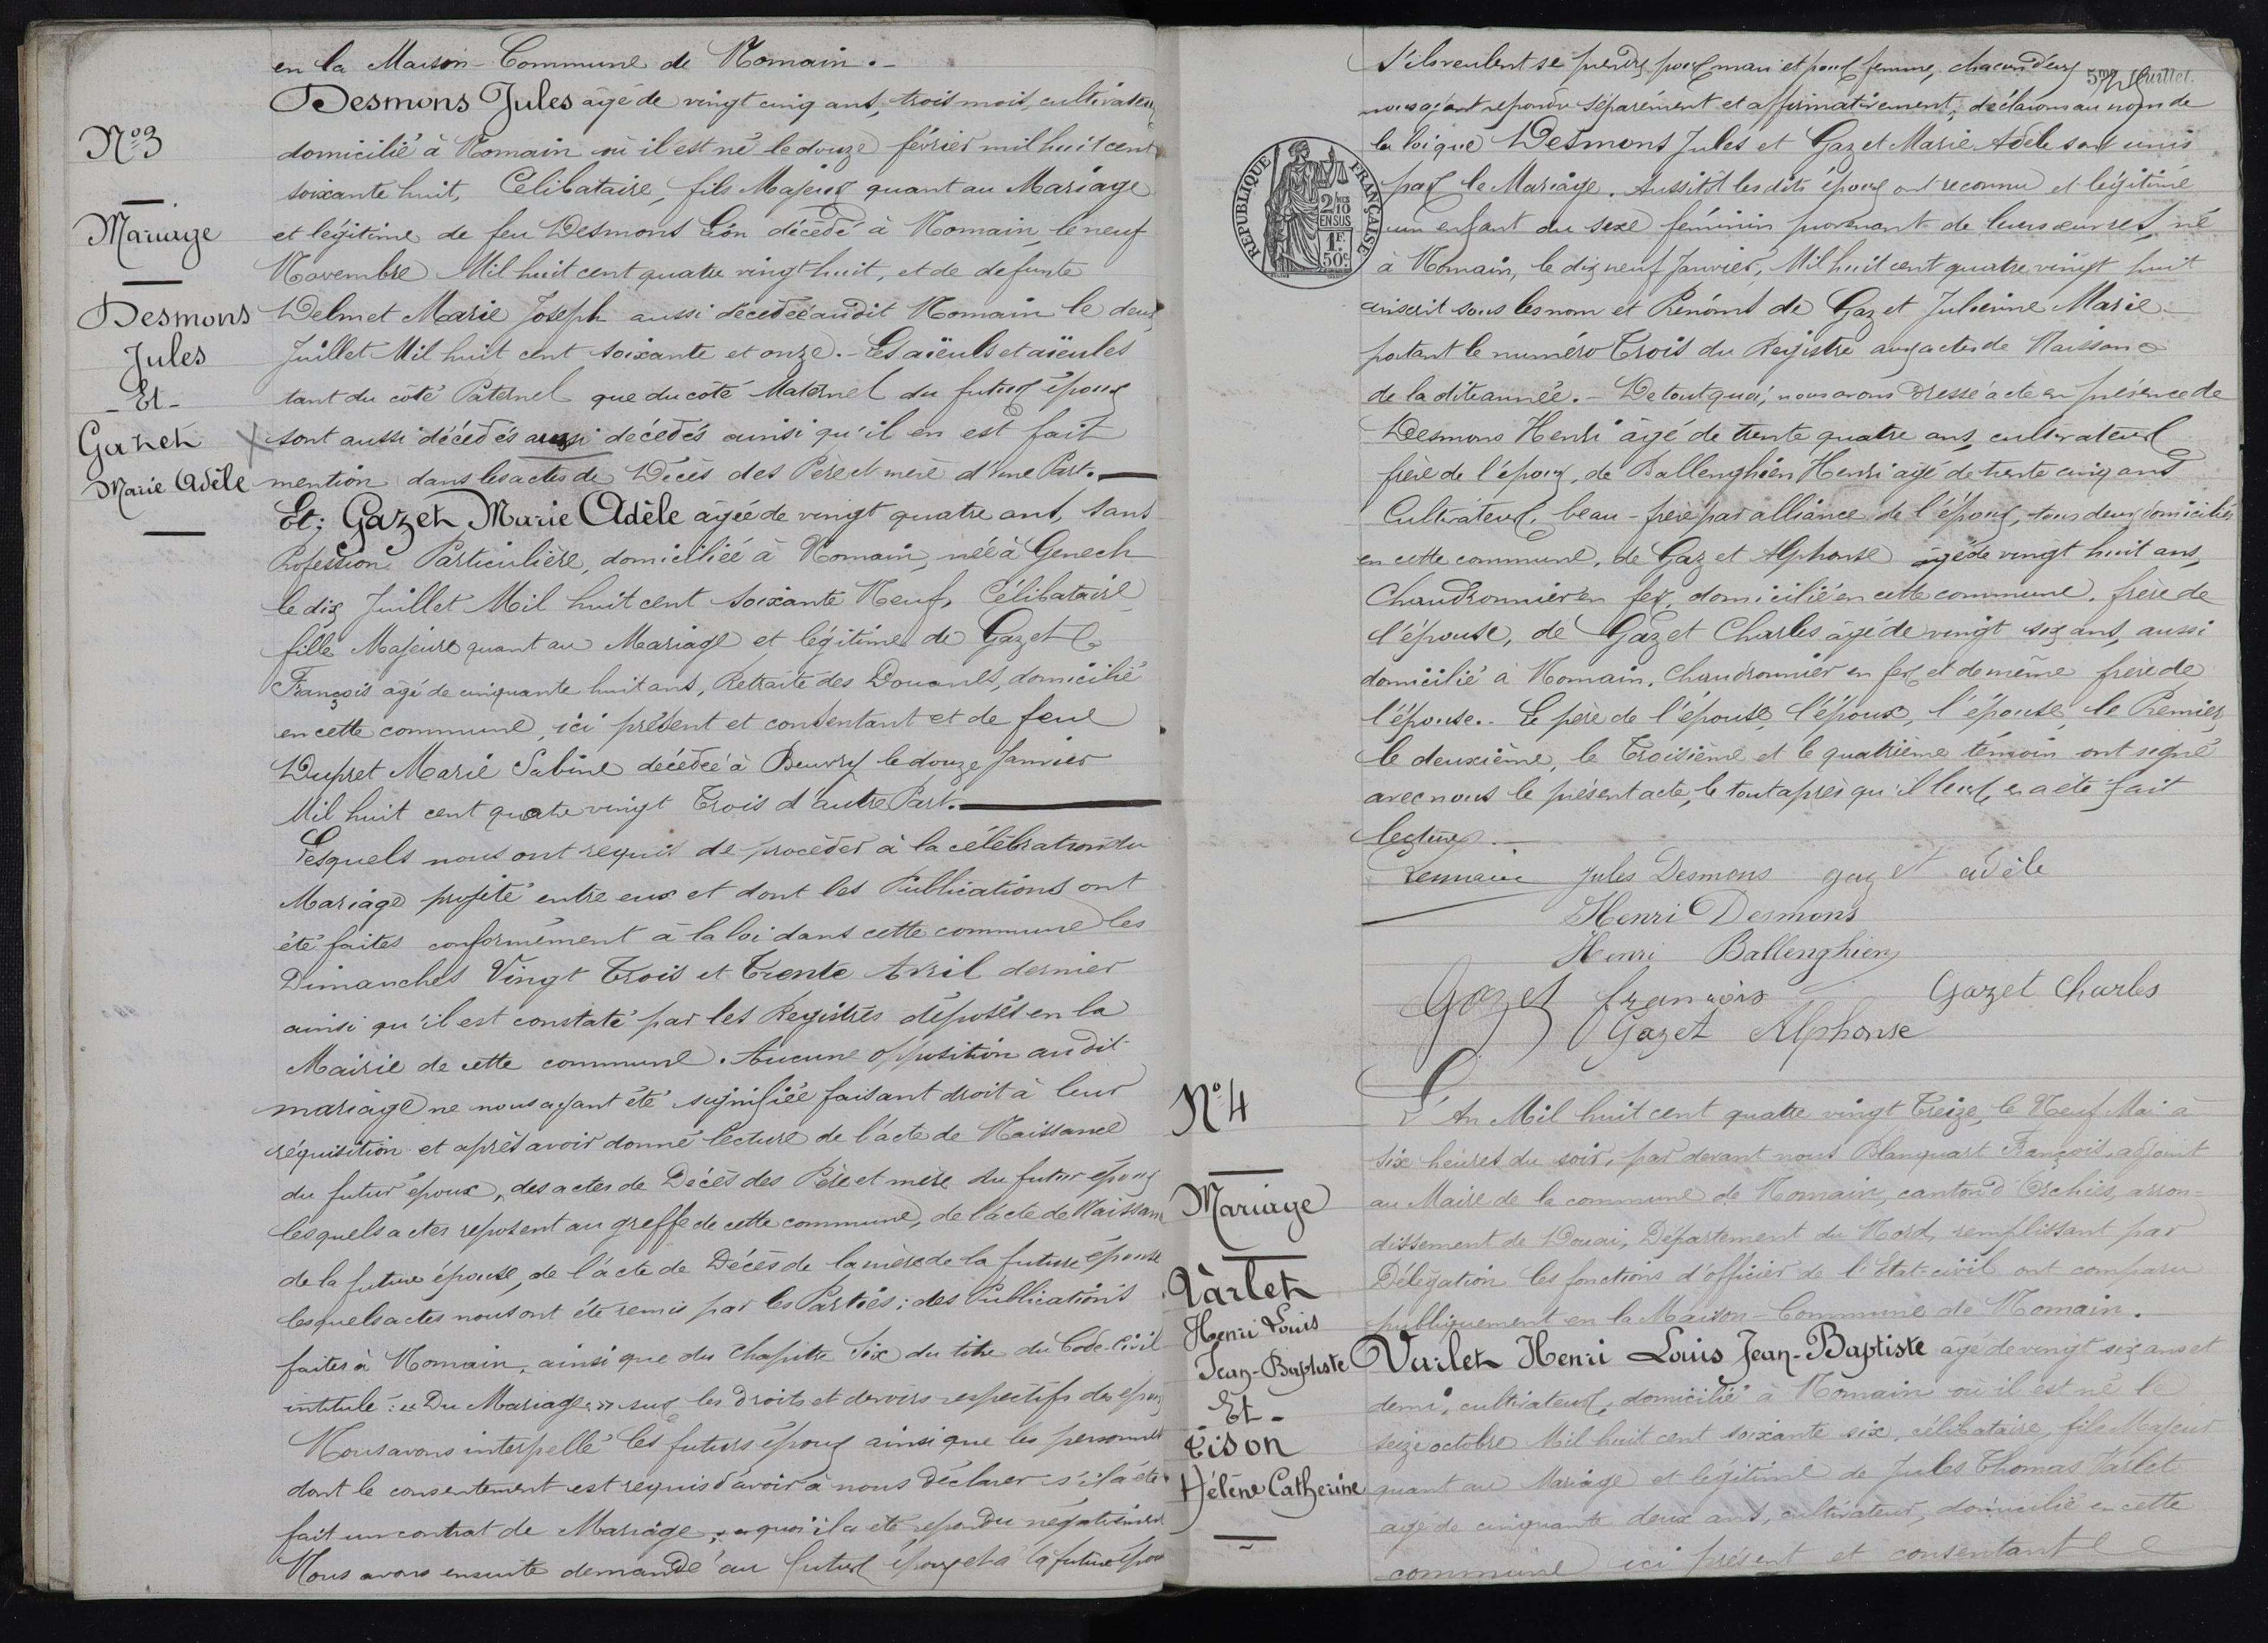 en la Maison-Commune de Nomain.-
Desmons Jules âgé de vingt cinq ans, trois mois, cultivateur
domicilié à Nomain où il est né le douze février mil huit cent
soixante huit, Célibataire, fils Majeur quant au Mariage
et légitime de feu Desmons Léon décédé à Nomain le neuf
Novembre Mil huit cent quatre vingt huit, et de défunte
Delmet Marie Joseph aussi décédée audit Nomain le deux
Juillet Mil huit cent soixante et onze.- Les aïeuls et aïeules
tant du côté Paternel que du côté Maternel du futur époux
sont aussi décédés aussi décédés ainsi qu'il en est fait
mention dans les actes de Décès des Père et mère d'une Part.
Et; Gazet Marie Adèle âgée de vingt quatre ans, sans
Profession Particulière, domiciliée à Nomain, née à Genech
le dix Juillet Mil huit cent soixante Neuf, Célibataire
fille Majeure quant au Mariage et légitime de Gazet
François âgé de cinquante huit ans, Retraité des Douanes, domicilié
en cette commune, ici présent et consentant et de feue
Dupret Marie Sabine décédée à Beuvry le douze Janvier
Mil huit cent quatre vingt Trois d'autre Part.
Lesquels nous ont requis de procéder à la célébration du
Mariage projeté entre eux et dont les Publications ont
été faites conformément à la loi dans cette commune les
Dimanches Vingt Trois et Trente Avril dernier
ainsi qu'il est constaté par les Registres déposés en la
Mairie de cette commune. Aucune opposition audit
mariage ne nous ayant été signifiée faisant droit à leur
réquisition et après avoir donné lecture de l'acte de Naissance
du futur époux, des actes de Décès des Père et mère du futur époux
lesquels actes reposent au greffe de cette commune, de l'acte de Naissance
de la future épouse, de l'acte de Décès de la mère de la future épouse
lesquels actes nous ont été remis par les Parties; des Publications
faites à Nomain, ainsi que du Chapitre Six du titre du Code-Civil
intitulé: "Du Mariage" sur les droits et devoirs respectifs des époux
Nous avons interpellé les futurs époux ainsi que les personnes
dont le consentement est requis d'avoir à nous déclarer s'il a été
fait un contrat de Mariage, à quoi il a été répondu négativement
Nous avons ensuite demandé au futur époux et à la future épouse
N° 3
Mariage
Desmons
Jules
- Et -
Gazet
Marie Adèle
5me feuillet.
S'ils veulent se prendre pour mari et pour femme, chacun d'eux
nous ayant répondu séparément et affirmativement, déclarons au nom de
la loi que Desmons Jules et Gazet Marie Adèle sont unis
par le Mariage. Aussitôt les dits époux ont reconnu et légitimé
un enfant du sexe féminin provenant de leurs œuvres, né
à Nomain, le dix neuf Janvier, Mil huit cent quatre vingt huit
inscrit sous les nom et Prénoms de Gazet Julienne Marie
portant le numéro Trois du Registre aux actes de Naissance
de la dite année.- De tout quoi, nous avons dressé acte en présence de
Desmons Henri âgé de trente quatre ans, cultivateur
frère de l'époux, de Ballenghien Henri âgé de trente cinq ans
Cultivateur, beau-frère par alliance de l'époux, tous deux domiciliés
en cette commune, de Gazet Alphonse âgé de vingt huit ans,
Chaudronnier en fer, domicilié en cette commune, frère de
l'épouse, de Gazet Charles âgé de vingt six ans, aussi
domicilié à Nomain, Chaudronnier en fer et de même frère de
l'épouse.. Le père de l'épouse, l'époux, l'épouse, le Premier,
le deuxième, le Troisième et le quatrième témoin ont signé
avec nous le présent acte, le tout après qu'il leur en a été fait
lecture.
REPUBLIQUE FRANÇAISE
2/10 EN SUS
1F. 50c.
Jules Desmons gazet adèle
Henri Desmons
Henri Ballenghien
Gazet françois Gazet Charles
Gazet Alphonse
N° 4
Mariage
Varlet
Henri Louis
Jean-Baptiste
- Et -
Tison
Hélène Catherine
L'An Mil huit cent quatre vingt Treize, le Neuf Mai à
six heures du soir, par devant nous Blanquart François, adjoint
au Maire de la commune de Nomain, canton d'Orchies, arron=
dissement de Douai, Département du Nord, remplissant par
Délégation les fonctions d'officier de l'État-civil ont comparu
publiquement en la Maison-Commune de Nomain.
Varlet Henri Louis Jean-Baptiste âgé de vingt six ans et
demi, cultivateur, domicilié à Nomain où il est né le
seize octobre Mil huit cent soixante six, célibataire, fils Majeur
quant au Mariage et légitime de Jules Thomas Varlet
âgé de cinquante deux ans, cultivateur, domicilié en cette
commune ici présent et consentant